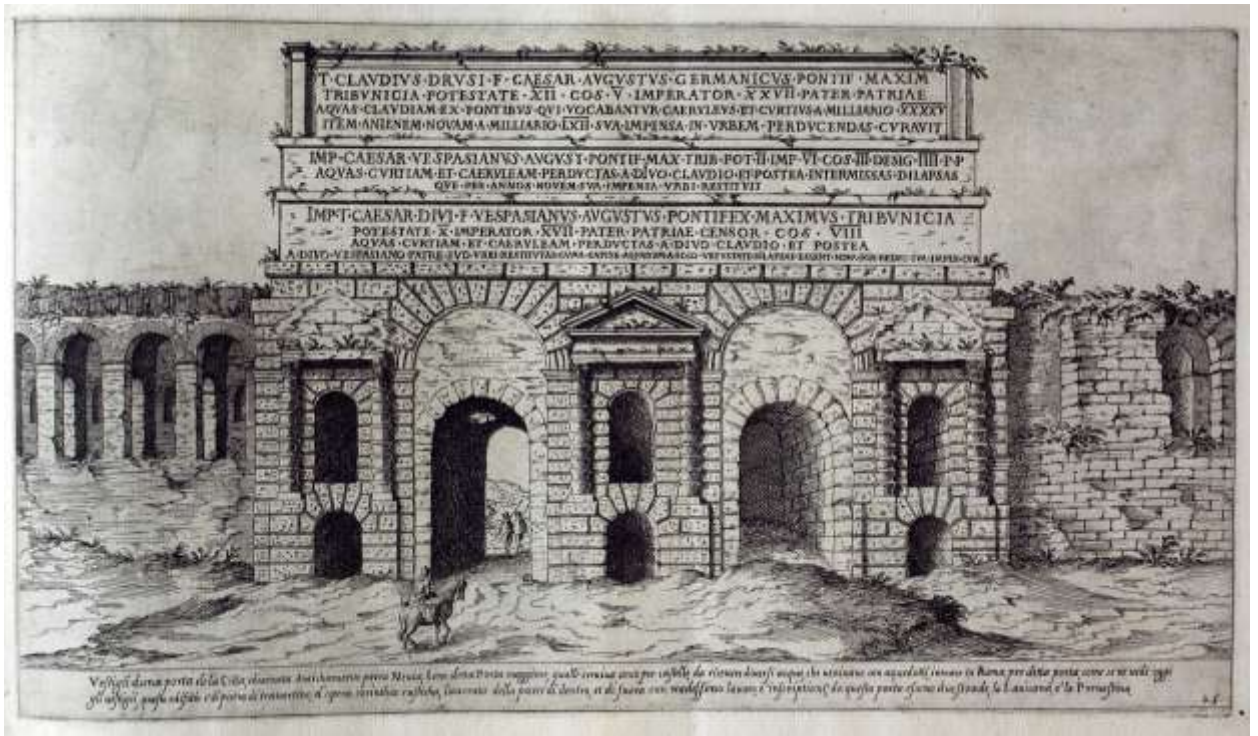 T·CLAVDIVS·DRVSI·F·CAESAR·AVGVSTVS·GERMANICVS·PONTIF·MAXIM
TRIBVNICIA·POTESTATE·XII·COS·V·IMPERATOR·XXVII·PATER·PATRIAE
AQVAS·CLAVDIAM·EX·FONTIBVS·QVI·VOCABANTVR·CAERVLEVS·ET·CVRTIVS·A·MILLIARIO·XXXXV
ITEM·ANIENEM·NOVAM·A·MILLIARIO·LXII·SVA·IMPENSA·IN·VRBEM·PERDVCENDAS·CVRAVIT
IMP·CAESAR·VESPASIANVS·AVGVST·PONTIF·MAX·TRIB·POT·II·IMP·VI·COS·III·DESIG·IIII·P·P
AQVAS·CVRTIAM·ET·CAERVLEAM·PERDVCTAS·A·DIVO·CLAVDIO·ET·POSTEA·INTERMISSAS·DILAPSAS
QVE·PER·ANNOS·NOVEM·SVA·IMPENSA·VRBI·RESTITVIT
IMP·T·CAESAR·DIVI·F·VESPASIANVS·AVGVSTVS·PONTIFEX·MAXIMVS·TRIBVNICIA
POTESTATE·X·IMPERATOR·XVII·PATER·PATRIAE·CENSOR·COS·VIII
AQVAS·CVRTIAM·ET·CAERVLEAM·PERDVCTAS·A·DIVO·CLAVDIO·ET·POSTEA
A·DIVO·VESPASIANO·PATRE·SVO·VRBI·RESTITVTAS·CVM·A·CAPITE·AQVARVM·A·SOLO·VETVSTATE·DILAPSAE·ESSENT·NOVA·FORMA
Vestigij d'una porta de la Citta, chiamata anticamente porta Nevia, hora detta Porta maggiore, quale serviva anco per castello da ricevere diversi acque, che venivano con aquedotti in Roma per ditta porta come se ne vede oggi
gli vestigij, questo edificio è di pietra di travertino, d'opera corinthia rusticha, lavorato della parte di dentro, et di fuora con medessimo lavoro, e inscriptione, da questa parte escono due strade, la Lavicana, e la Prenestina